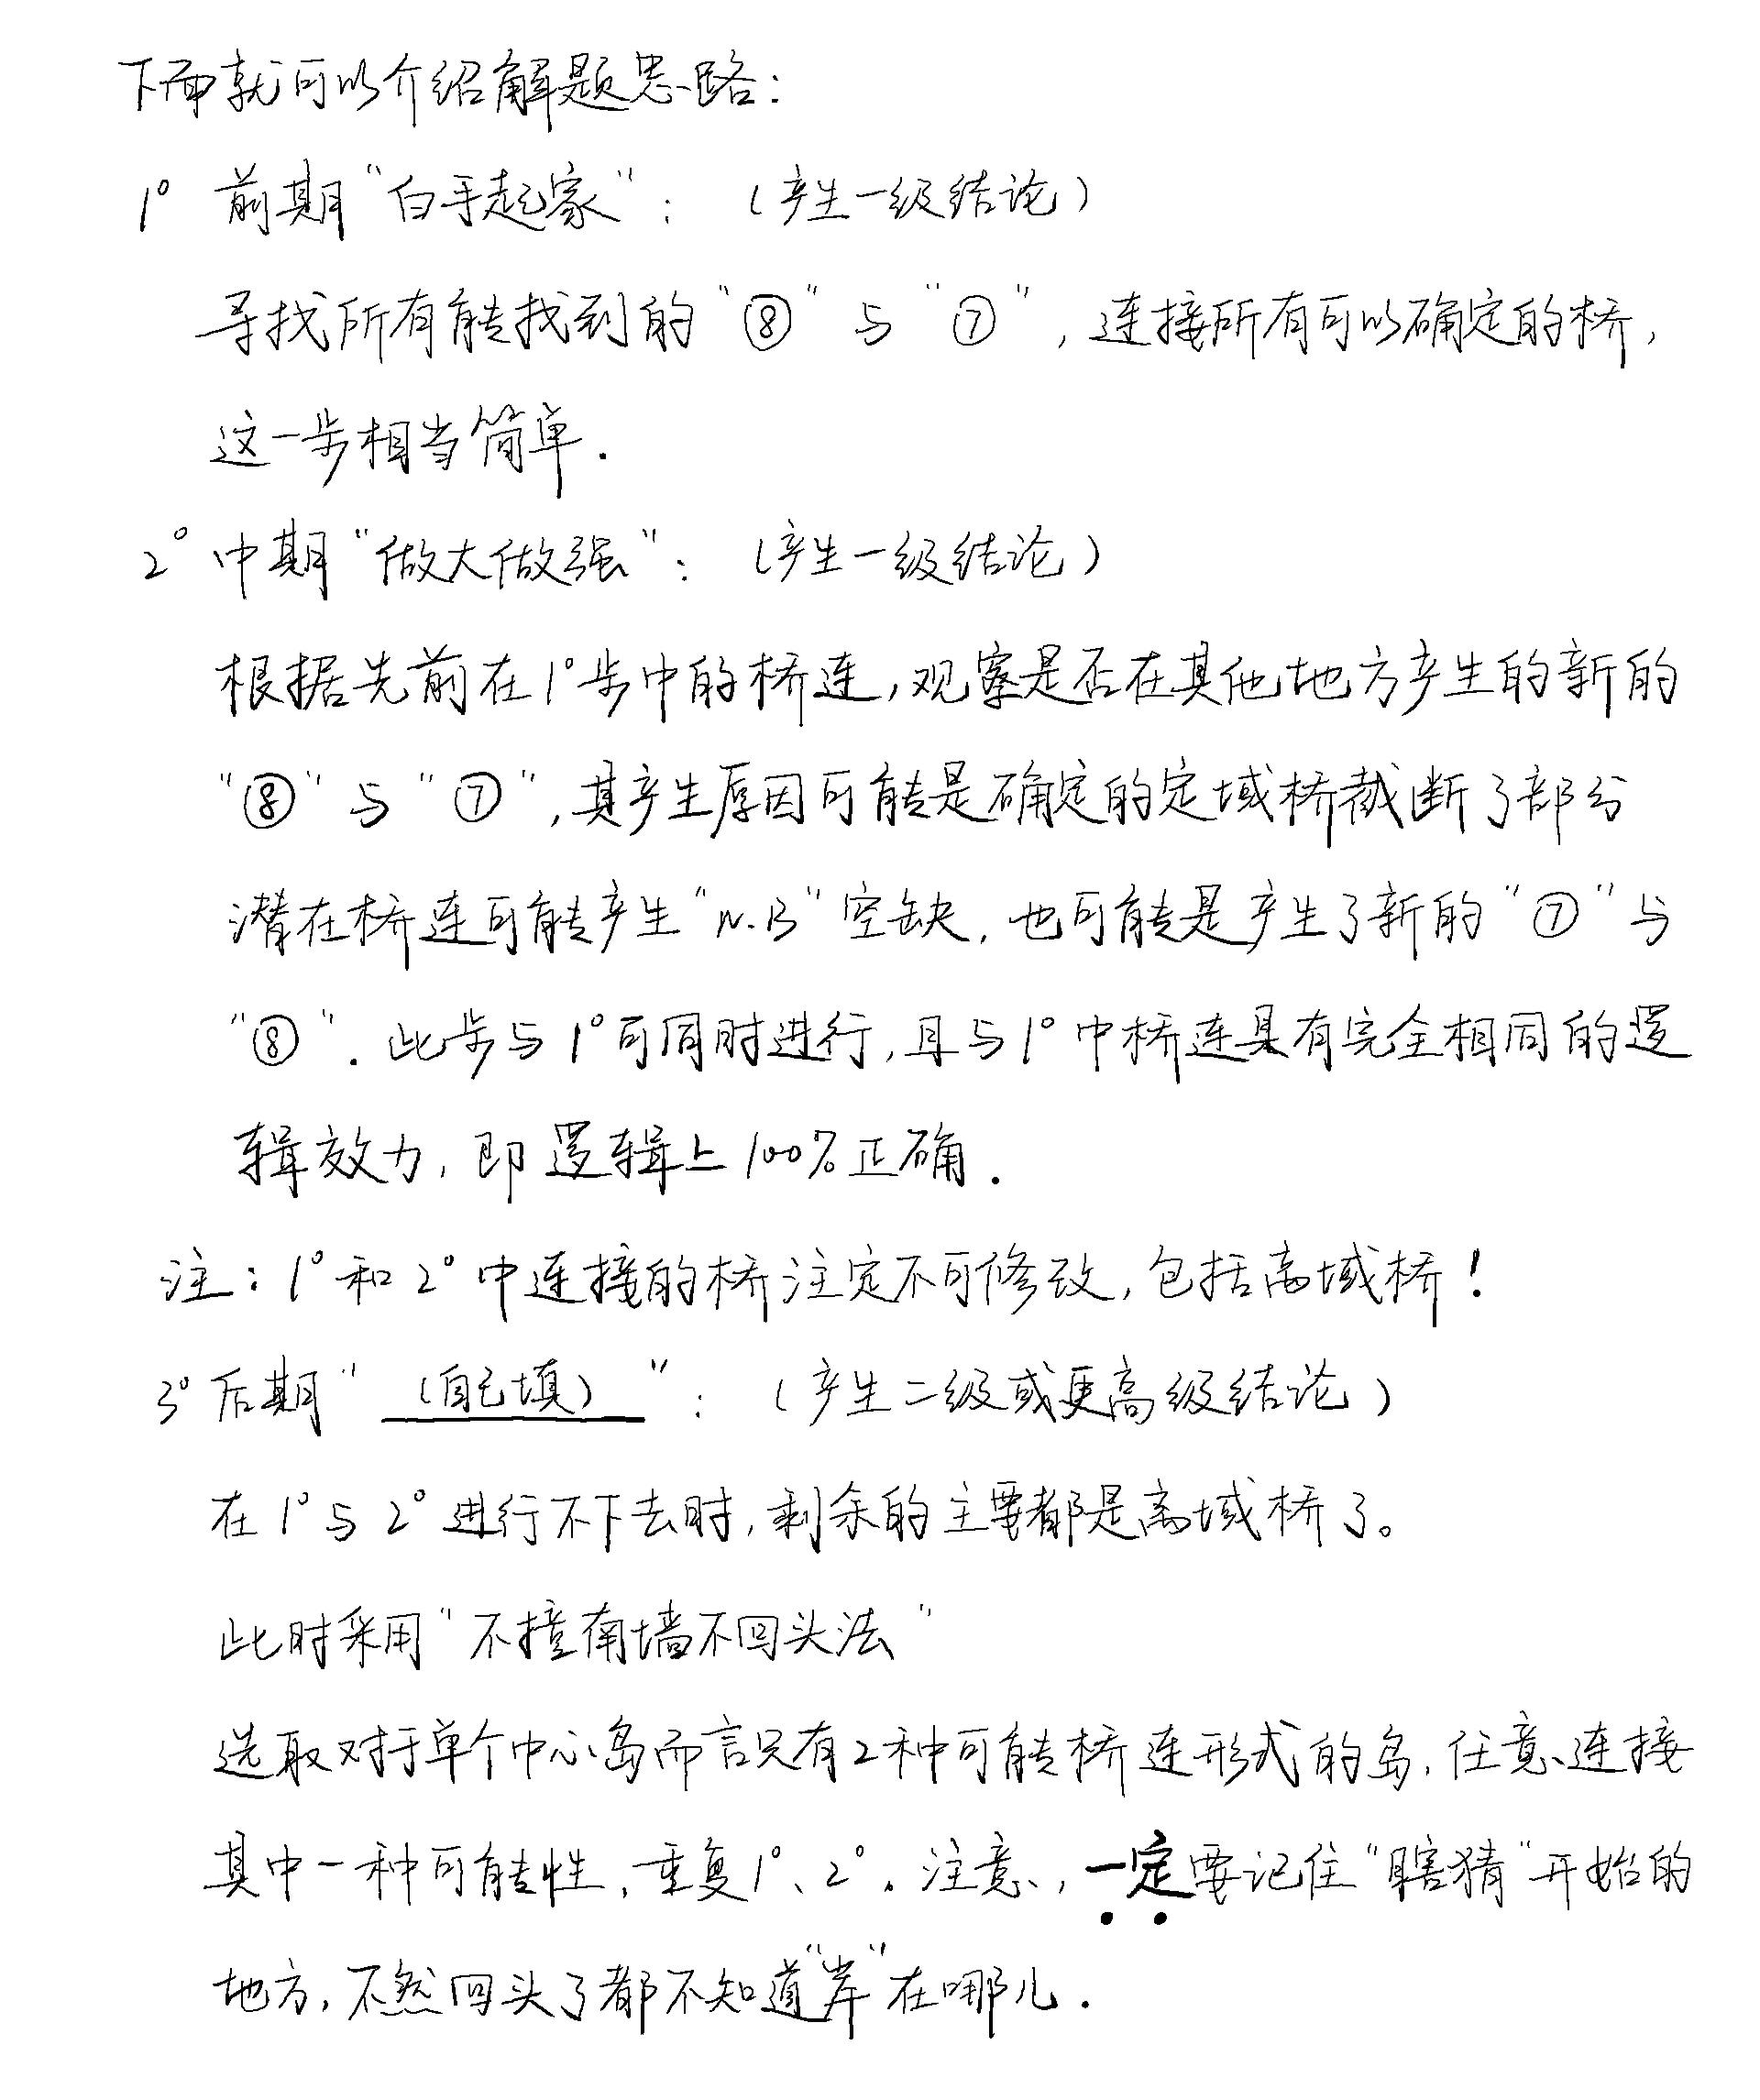 下面就可以介绍解题思路：
1° 前期“白手起家”：（产生一级结论）
寻找所有能找到的“⑧”与“⑦”，连接所有可以确定的桥，
这一步相当简单．
2° 中期“做大做强”：（产生一级结论）
根据先前在1°步中的桥连，观察是否在其他地方产生的新的
“⑧”与“⑦”，其产生原因可能是确定的定域桥截断了部分
潜在桥连可能产生“N.B”空缺，也可能是产生了新的“⑦”与
“⑧”．此步与1°可同时进行，且与1°中桥连具有完全相同的逻
辑效力，即逻辑上100%正确．
注：1°和2°中连接的桥注定不可修改，包括离域桥！
3° 后期“（自己填）”：（产生二级或更高级结论）
在1°与2°进行不下去时，剩余的主要都是离域桥了。
此时采用“不撞南墙不回头法”
选取对于单个中心岛而言只有2种可能桥连形式的岛，任意连接
其中一种可能性，重复1°、2°。注意，一定要记住“瞎猜”开始的
地方，不然回头了都不知道“岸”在哪儿．